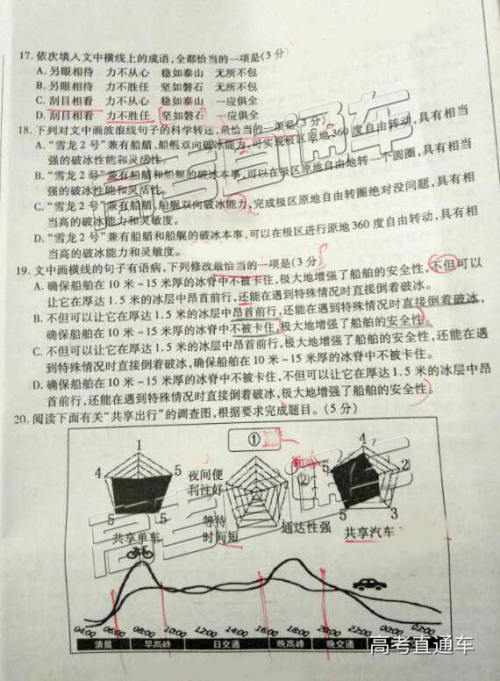 17. 依次填入文中横线上的成语,全都恰当的一项是(3分)
A. 另眼相待 力不从心 稳如泰山 无所不包
B. 另眼相待 力不胜任 坚如磐石 无所不包
C. 刮目相看 力不从心 稳如泰山 一应俱全
D. 刮目相看 力不胜任 坚如磐石 一应俱全
18. 下列对文中画波浪线句子的科学转述,最恰当的一项是(3分)
A. “雪龙2号”兼有船艏、船艉双向破冰能力,可实现极区原地360度自由转动,具有相当
强的破冰性能和灵活性。
B. “雪龙2号”兼有船艏和船艉的破冰本事,可以在极区原地自由地转一个圆圈,具有相
当强的破冰性能和灵活性。
C. “雪龙2号”兼有船艏、船艉双向破冰能力,完成极区原地自由转圈绝对没问题,具有相
当高的破冰能力和灵敏度。
D. “雪龙2号”兼有船艏和船艉的破冰本事,可以在极区进行原地360度自由转动,具有相
当高的破冰能力和灵敏度。
19. 文中画横线的句子有语病,下列修改最恰当的一项是(3分)
A. 确保船舶在10米-15米厚的冰脊中不被卡住,极大地增强了船舶的安全性,不但可以
让它在厚达1.5米的冰层中昂首前行,还能在遇到特殊情况时直接倒着破冰。
B. 不但可以让它在厚达1.5米的冰层中昂首前行,还能在遇到特殊情况时直接倒着破冰,
确保船舶在10米-15米厚的冰脊中不被卡住,极大地增强了船舶的安全性。
C. 不但可以让它在厚达1.5米的冰层中昂首前行,极大地增强了船舶的安全性,还能在遇
到特殊情况时直接倒着破冰,确保船舶在10米-15米厚的冰脊中不被卡住。
D. 确保船舶在10米-15米厚的冰脊中不被卡住,不但可以让它在厚达1.5米的冰层中昂
首前行,还能在遇到特殊情况时直接倒着破冰,极大地增强了船舶的安全性。
20. 阅读下面有关“共享出行”的调查图,根据要求完成题目。(5分)
1
4 5
5 5
共享单车
①
夜间便
利性好
②
等待
时间短
通达性强
5
4 2
5 3
共享汽车
04:00 06:00 08:00 10:00 12:00 14:00 16:00 18:00 20:00 22:00 00:00 02:00
清晨 早高峰 日交通 晚高峰 晚交通
高考直通车
高考直通车